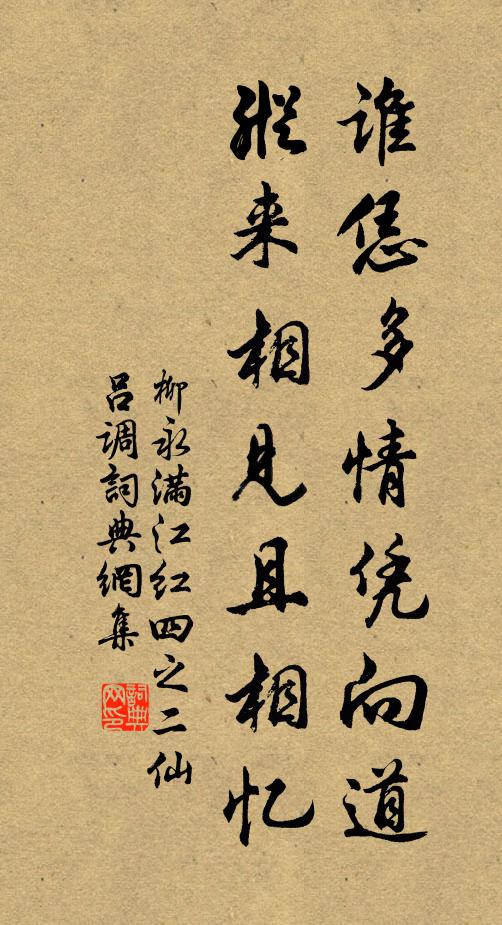 谁恁多情凭向道
纵来相见且相忆
柳永满江红四之二仙
吕调詞典網集
詞典网印